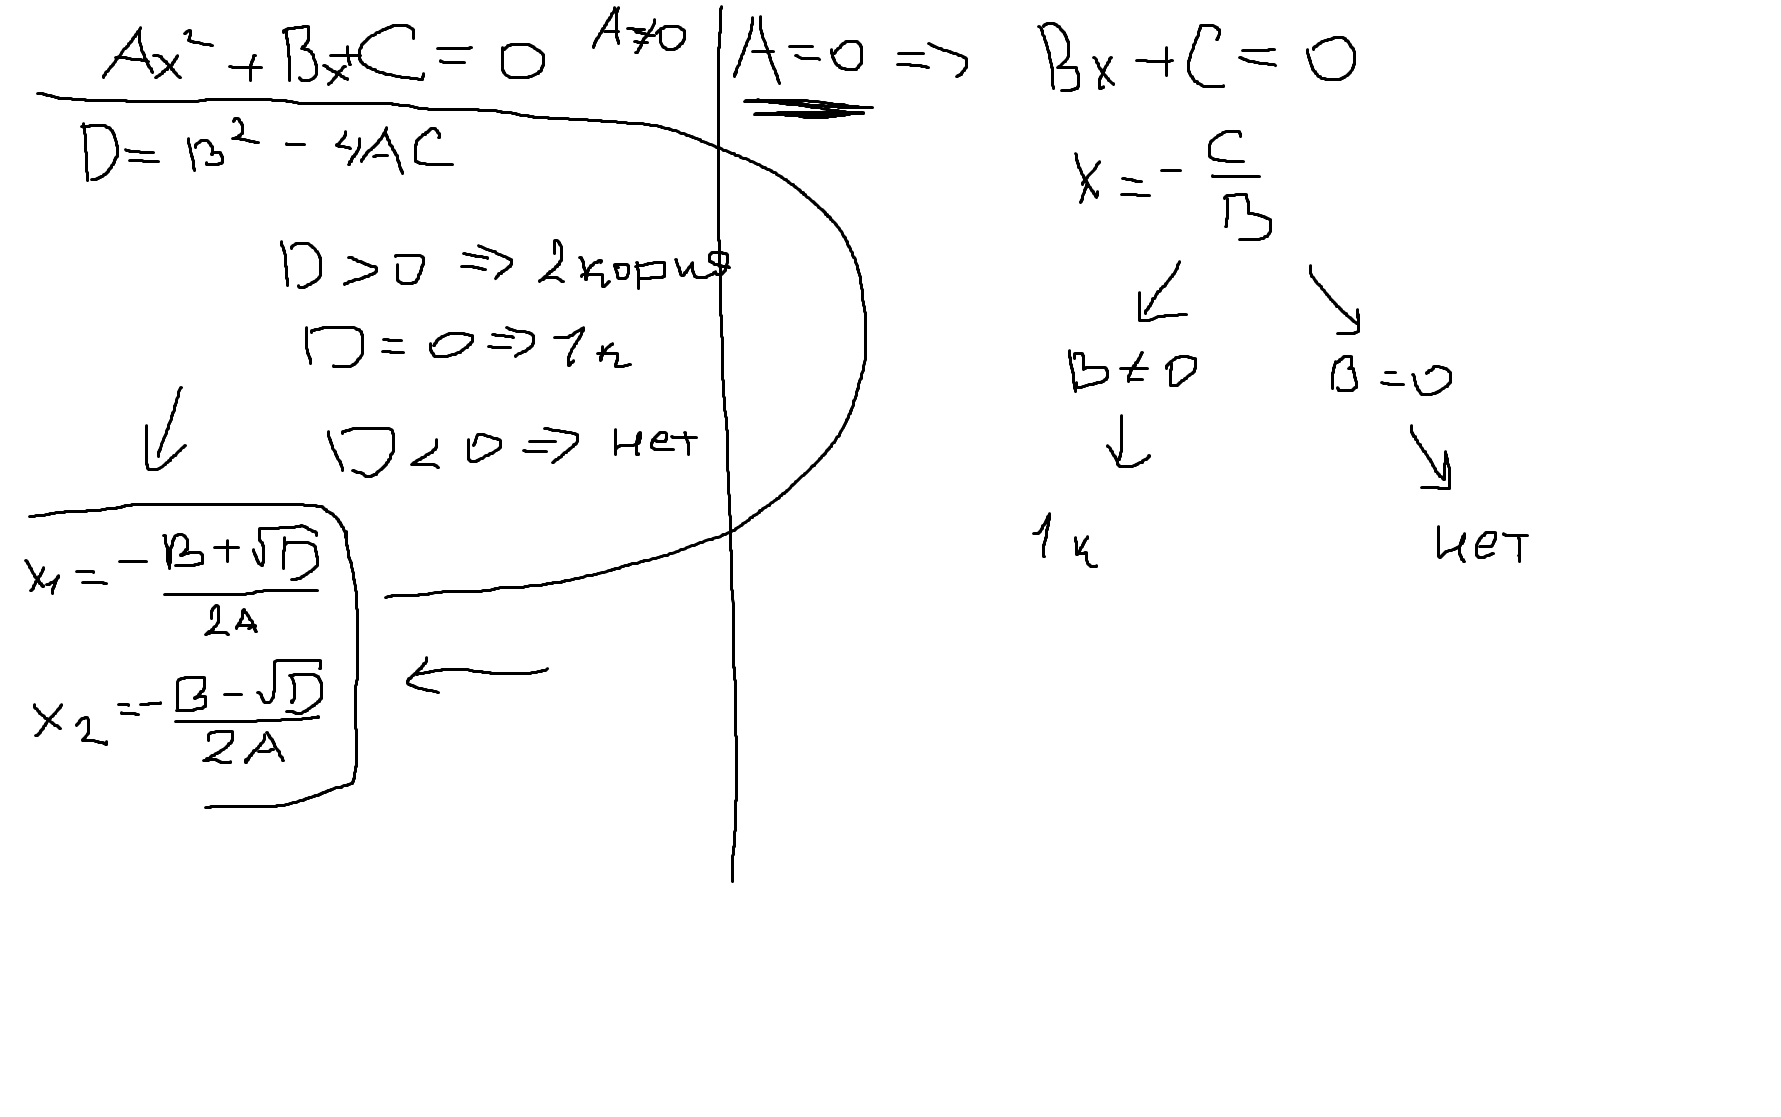 Ax² + Bx + C = 0   A≠0
D = B² - 4AC
D > 0 => 2 корня
D = 0 => 1 к
D < 0 => нет
x1 = -B + √D / 2A
x2 = -B - √D / 2A
A = 0 => Bx + C = 0
x = - C / B
B ≠ 0   B = 0
1 к   нет